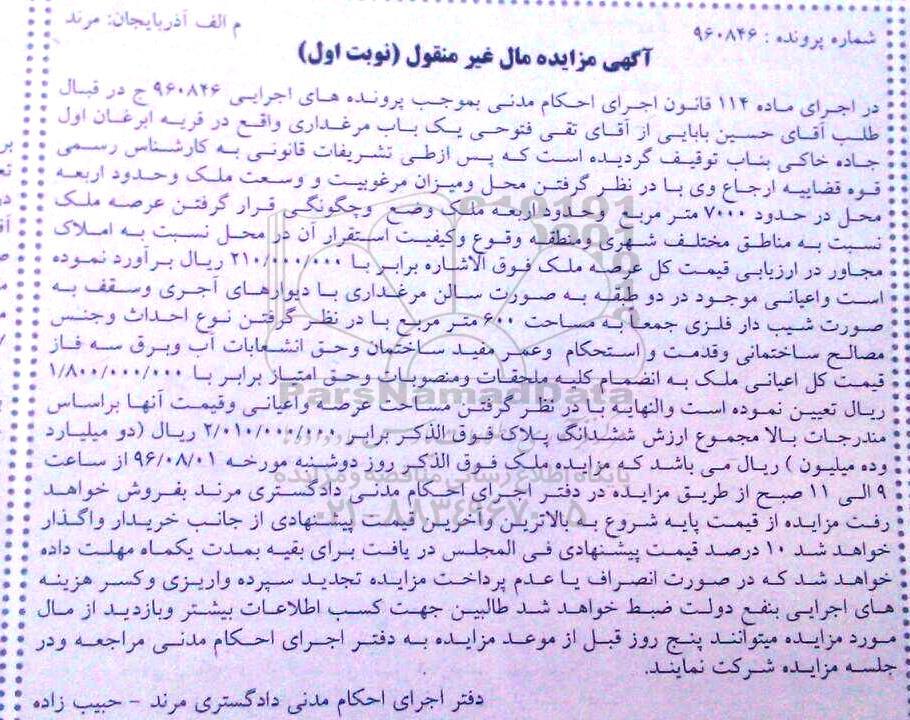 شماره پرونده : ۹۶۰۸۴۶
م الف آذربایجان: مرند
آگهی مزایده مال غیر منقول (نوبت اول)
در اجرای ماده ۱۱۴ قانون اجرای احکام مدنی بموجب پرونده های اجرایی ۹۶۰۸۴۶ ج در قبال
طلب آقای حسین بابایی از آقای تقی فتوحی یک باب مرغداری واقع در قریه ابرغان اول
جاده خاکی بناب توقیف گردیده است که پس ازطی تشریفات قانونی به کارشناس رسمی
قوه قضاییه ارجاع وی با در نظر گرفتن محل ومیزان مرغوبیت و وسعت ملک وحدود اربعه
محل در حدود ۷۰۰۰ متر مربع وحدود اربعه ملک وضع وچگونگی قرار گرفتن عرصه ملک
نسبت به مناطق مختلف شهری ومنطقه وقوع وکیفیت استقرار آن در محل نسبت به املاک
مجاور در ارزیابی قیمت کل عرصه ملک فوق الاشاره برابر با ۲۱۰/۰۰۰/۰۰۰ ریال برآورد نموده
است واعیانی موجود در دو طبقه به صورت سالن مرغداری با دیوارهای آجری وسقف به
صورت شیب دار فلزی جمعا به مساحت ۶۰۰ متر مربع با در نظر گرفتن نوع احداث وجنس
مصالح ساختمانی وقدمت و استحکام وعمر مفید ساختمان وحق انشعابات آب وبرق سه فاز
قیمت کل اعیانی ملک به انضمام کلیه ملحقات ومنصوبات وحق امتیاز برابر با ۱/۸۰۰/۰۰۰/۰۰۰
ریال تعیین نموده است والنهایه با در نظر گرفتن مساحت عرصه واعیانی وقیمت آنها براساس
مندرجات بالا مجموع ارزش ششدانگ پلاک فوق الذکر برابر ۲/۰۱۰/۰۰۰/۰۰۰ ریال (دو میلیارد
وده میلیون ) ریال می باشد که مزایده ملک فوق الذکر روز دوشنبه مورخه ۹۶/۰۸/۰۱ از ساعت
۹ الی ۱۱ صبح از طریق مزایده در دفتر اجرای احکام مدنی دادگستری مرند بفروش خواهد
رفت مزایده از قیمت پایه شروع به بالاترین وآخرین قیمت پیشنهادی از جانب خریدار واگذار
خواهد شد ۱۰ درصد قیمت پیشنهادی فی المجلس در یافت برای بقیه بمدت یکماه مهلت داده
خواهد شد که در صورت انصراف یا عدم پرداخت مزایده تجدید سپرده واریزی وکسر هزینه
های اجرایی بنفع دولت ضبط خواهد شد طالبین جهت کسب اطلاعات بیشتر وبازدید از مال
مورد مزایده میتوانند پنج روز قبل از موعد مزایده به دفتر اجرای احکام مدنی مراجعه ودر
جلسه مزایده شرکت نمایند.
دفتر اجرای احکام مدنی دادگستری مرند - حبیب زاده
ParsNamadData
پایگاه اطلاع رسانی مناقصه و مزایده
۰۲۱-۸۸۳۴۹۶۷۰-۵